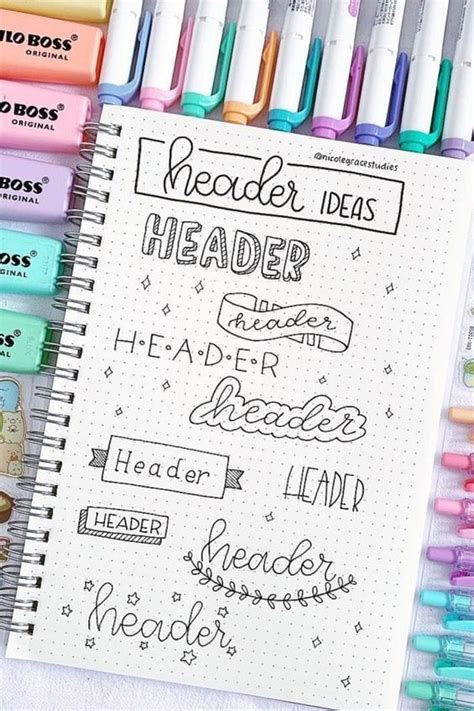 LO BOSS
ORIGINAL
LO BOSS
ORIGINAL
BOSS
ORIGINAL
BOSS
ORIGINAL
BOSS
ORIGINAL
@nicolegracestudies
header IDEAS
HEADER
header
H•E•A•D•E•R
header
Header
HEADER
HEADER
header
header